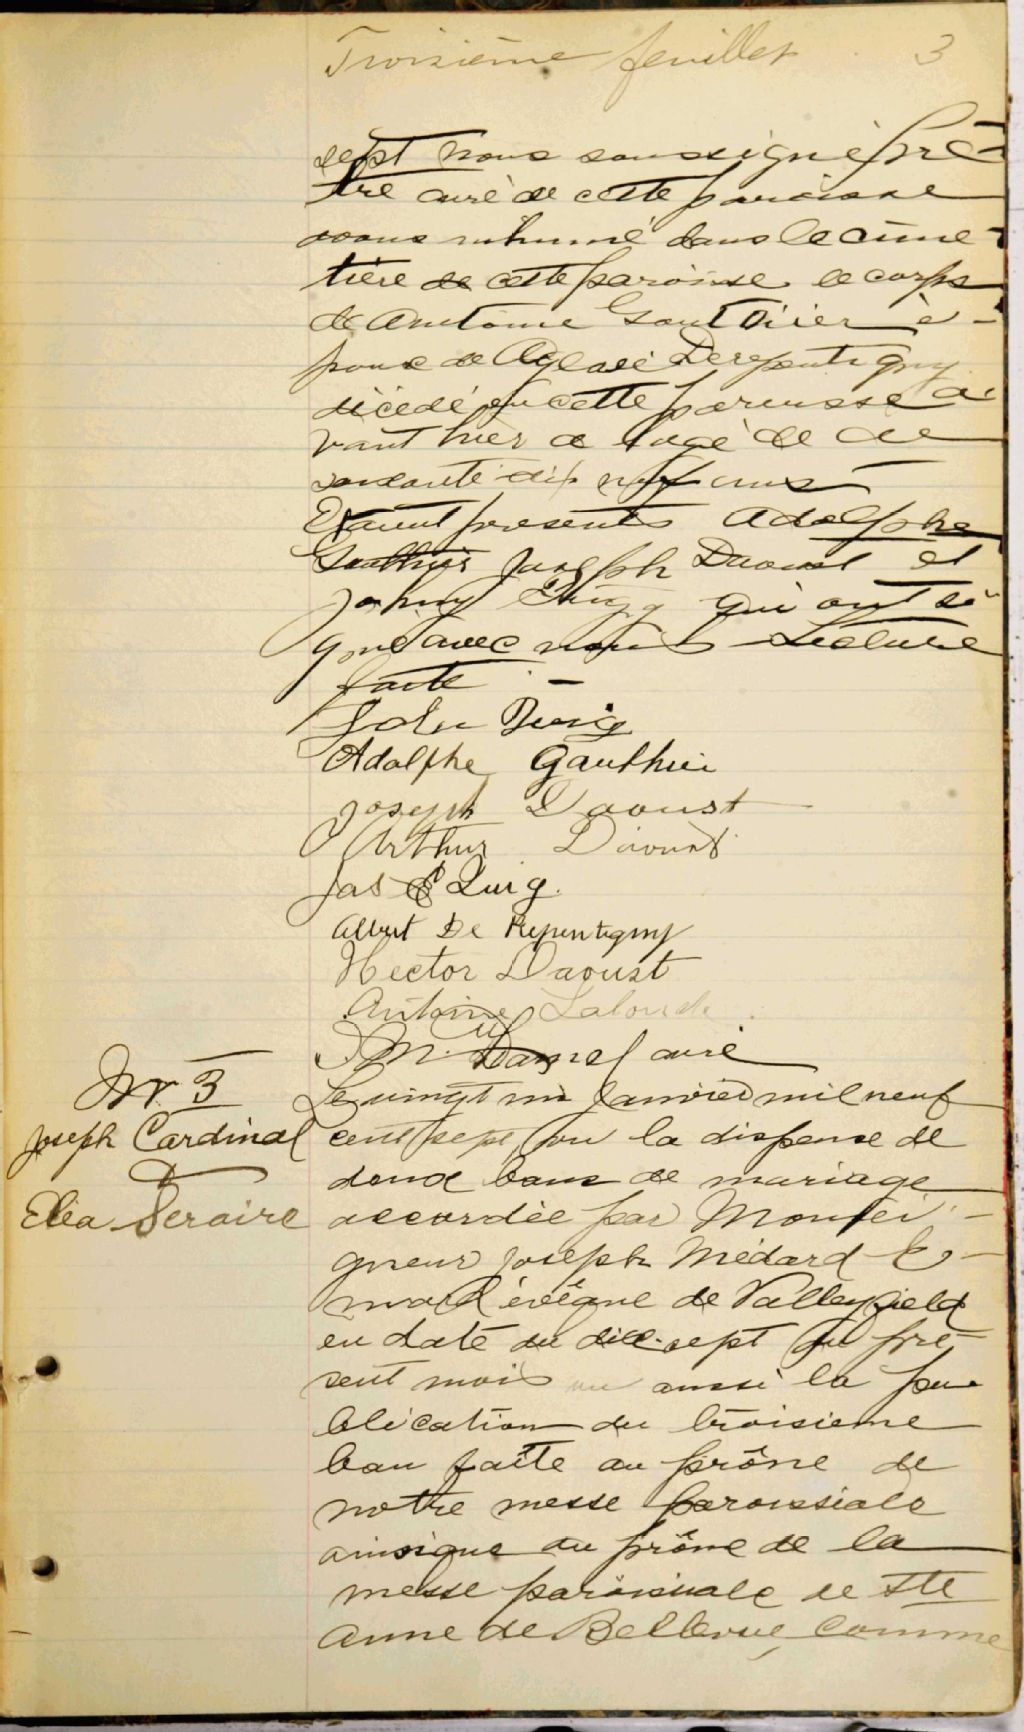 Troisième feuillet 3
sept nous soussigné prê-
tre curé de cette paroisse
avons inhumé dans le cime-
tière de cette paroisse le corps
de Antoine Gauthier é-
poux de Aglaé Derepentigny
décédé en cette paroisse a-
vant hier a l'age de
soixante dix neuf ans
Etaient presents Adolphe
Gauthier Joseph Daoust et
Johny Quig qui ont si
gné avec nous Lecture
faite -
John Quig
Adolphe Gauthier
Joseph Daoust
Arthur Daoust
Jas E Quig.
Albert De Repentigny
Hector Daoust
Antoine Lalonde
curé
No 3
Joseph Cardinal
&
Eléa Seraire
Le vingt un Janvier mil neuf
cent sept, vu la dispense de
deux bans de mariage
accordée par Monsei-
gneur Joseph Médard E-
mard évêque de Valleyfield
en date du dix-sept du pré-
sent mois vu aussi la pu-
blication du troisieme
ban faite au prône de
notre messe paroissiale
ainsique au prône de la
messe paroissiale de Ste
Anne de Bellevue, comme